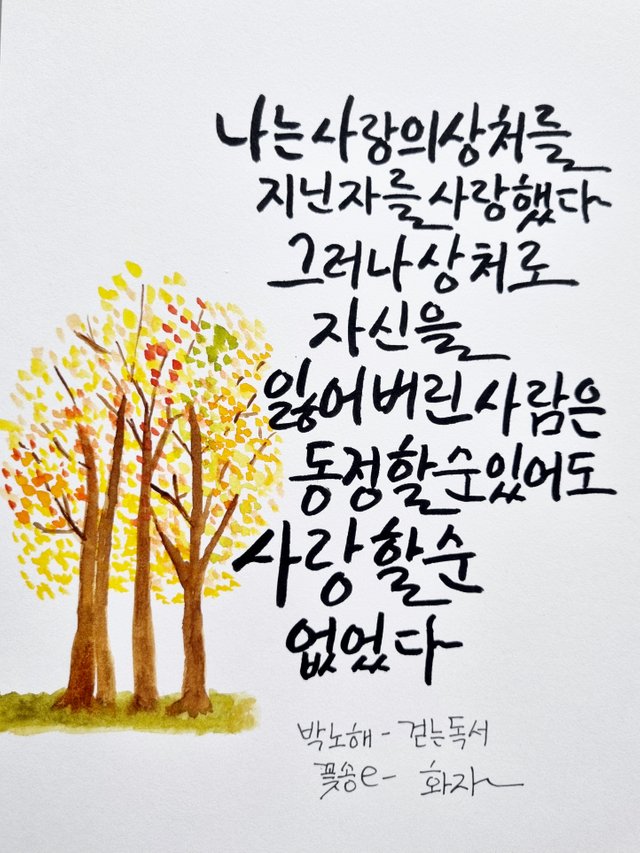 나는 사랑의 상처를
지닌 자를 사랑했다
그러나 상처로
자신을
잃어버린 사람은
동정할 순 있어도
사랑할 순
없었다
박노해 - 걷는독서
꽃송e - 화자